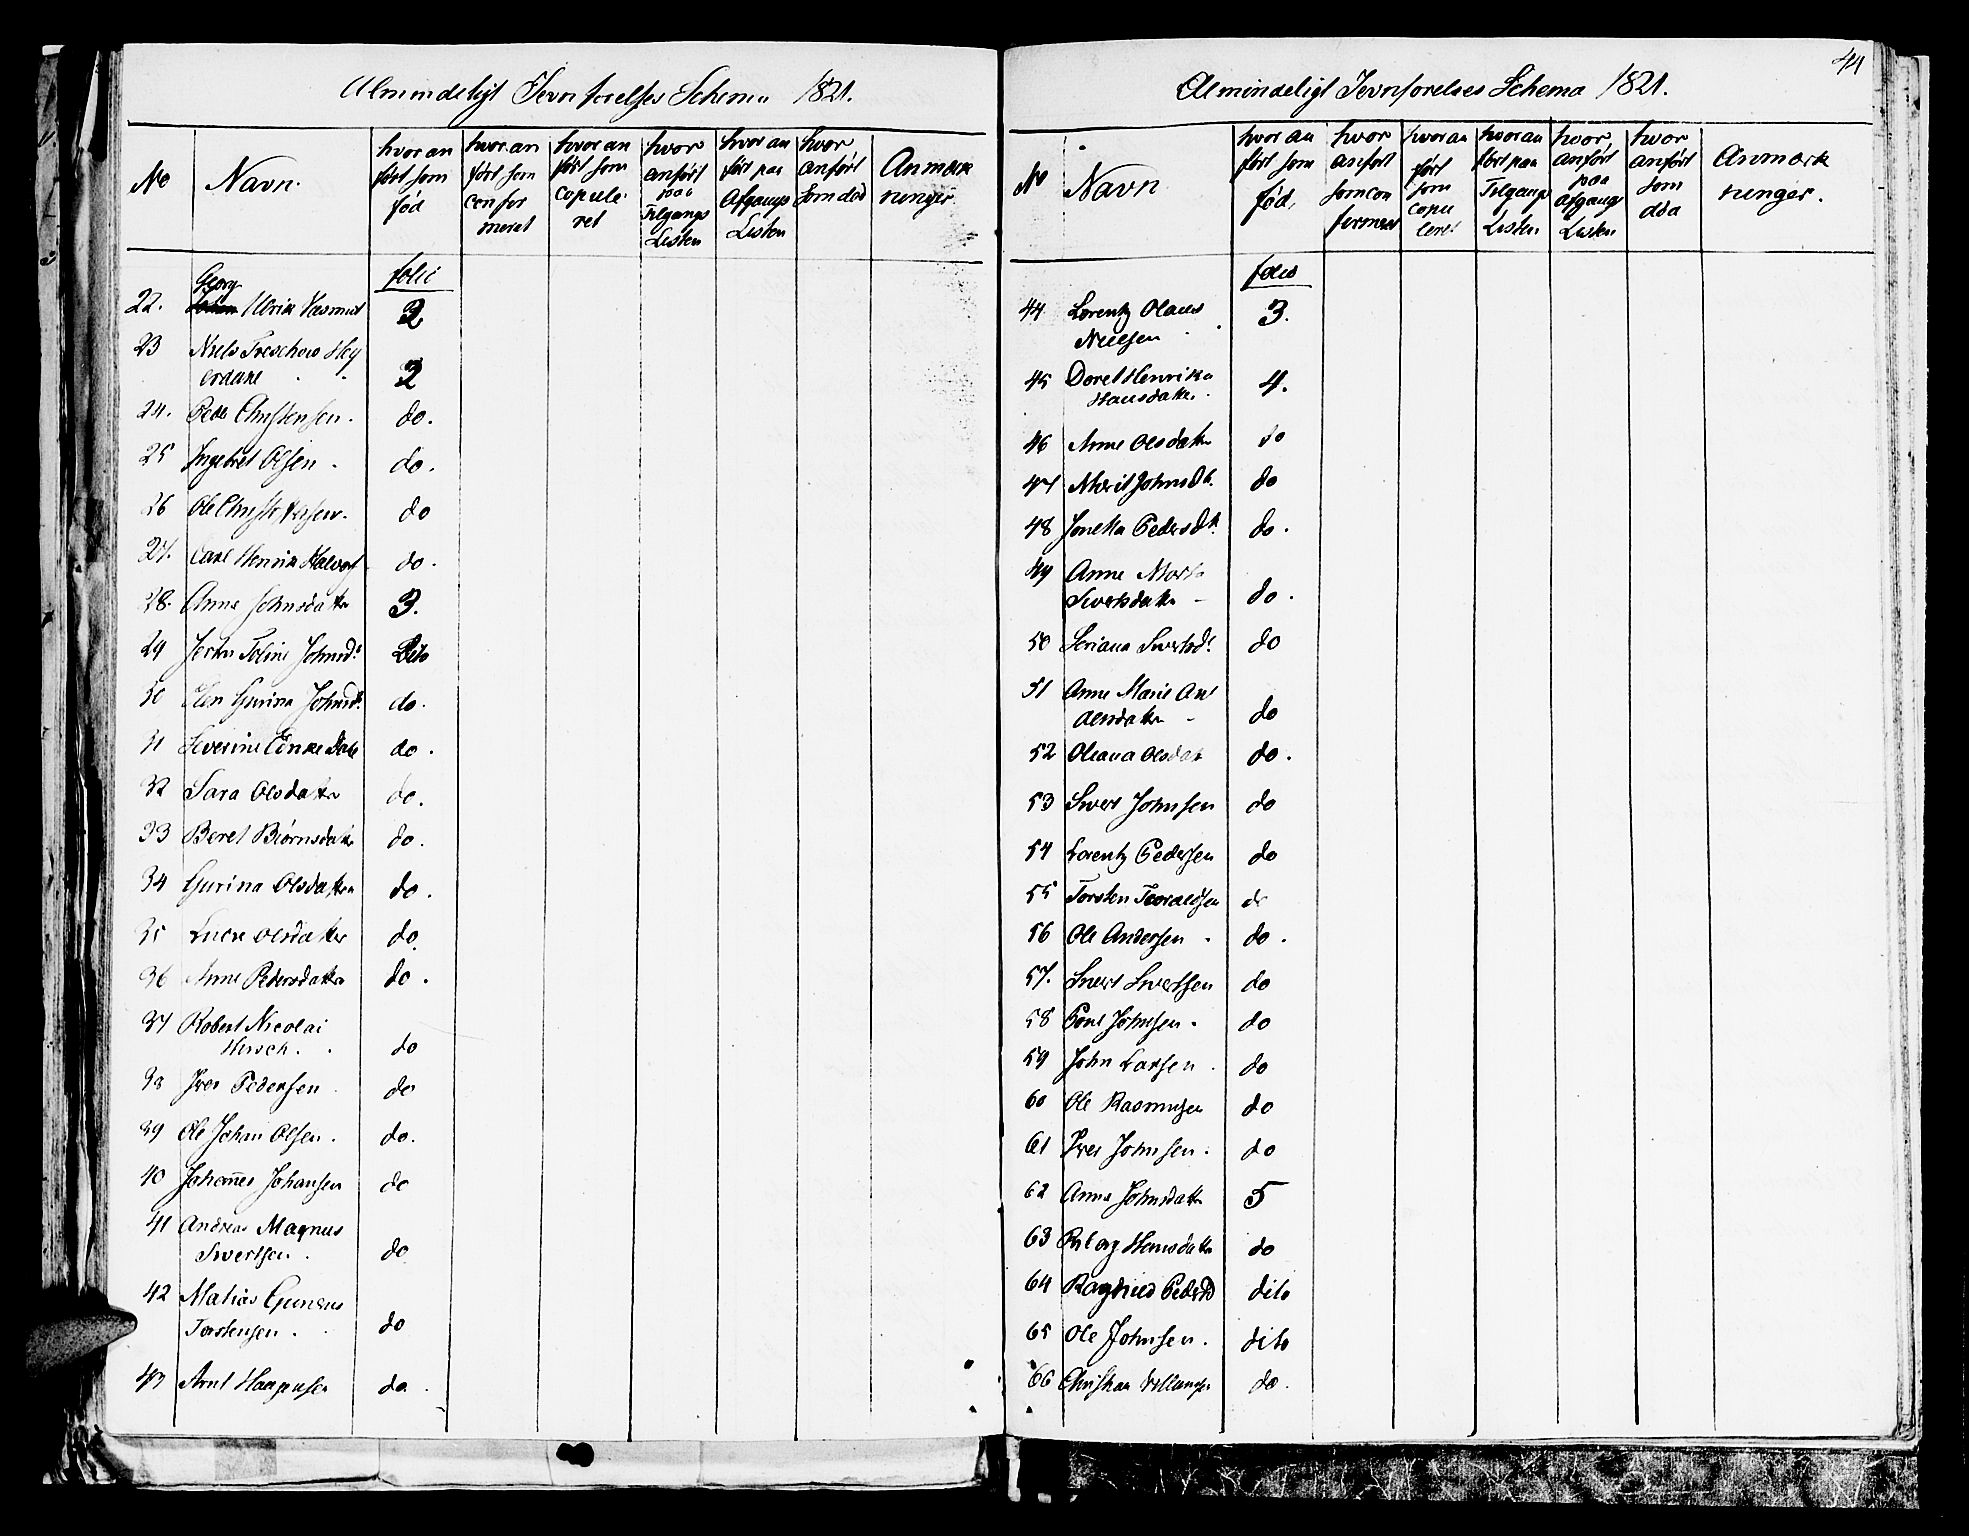 Almindeligt Jevnførelses Schema 1821.
No
Navn.
hvor an
ført som
fød
hvor an
ført som
confor
meret
hvor an
ført som
copule
ret
hvor
anført
paa
Tilgangs
Listen
hvor an
ført paa
Afgangs
Listen
hvor
anført
som død
Anmærk
ninger
folie
Georg
22. Ulrik Rasmus 2
23 Niels Treschow Hey
erdahl 2
24. Peder Christensen. do.
25 Ingebret Olsen do.
26 Ole Christophersen. do
27. Carl Henrik Halvors do.
28. Anne Johnsdatter 3.
29 Toline Johnsd. Dito
30 Elen Gurina Johnsd. do.
31 Severine do.
32 Sara Olsdatter do.
33 Beret Biørnsdatter do.
34 Gurina Olsdatter do.
35 Lucie Olsdatter do
36 Anne Pedersdatter do.
37 Robert Nicolai
Hirsch. do
38 Iver Pedersen do
39 Ole Johan Olsen. do.
40 Johannes Johansen do
41 Andreas Magnus
Sivertsen. do
42 Matias Gunerus
Torstensen. do
43 Arnt Haagensen do.
44
Almindeligt Jevnførelses Schema 1821.
No
Navn
hvor an
ført som
fød,
hvor
anført
som con
fermeret
hvor an
ført
som
copu
leret
hvor an
ført paa
Tilgangs
Listen
hvor
anført
paa
Afgangs
Listen
hvor
anført
som
død
Anmærk
ninger.
folio
44 Lorentz Olaus
Nielsen 3.
45 Doret Henrika
Hansdatter. 4.
46 Anne Olsdatter do
47 Marit Johnsdt. do
48 Joneta Pedersdt. do.
49 Anne Marta
Sivertsdatter do.
50 Seriana Sivertsd. do
51 Anne Marie An
dersdatter do
52 Oleana Olsdat do.
53 Sivert Johnsen do
54 Lorentz Pedersen do
55 Torsten Toraldsen do
56 Ole Andersen do.
57. Sivert Sivertsen do
58 Poul Johnsen. do
59 John Larsen do
60 Ole Rasmusen do
61 Iver Johnsen. do
62 Anne Johnsdatter 5
63 Hansdatter do
64 Ragnild Pedersd dito
65 Ole Johnsen. dito
66 Christian do.